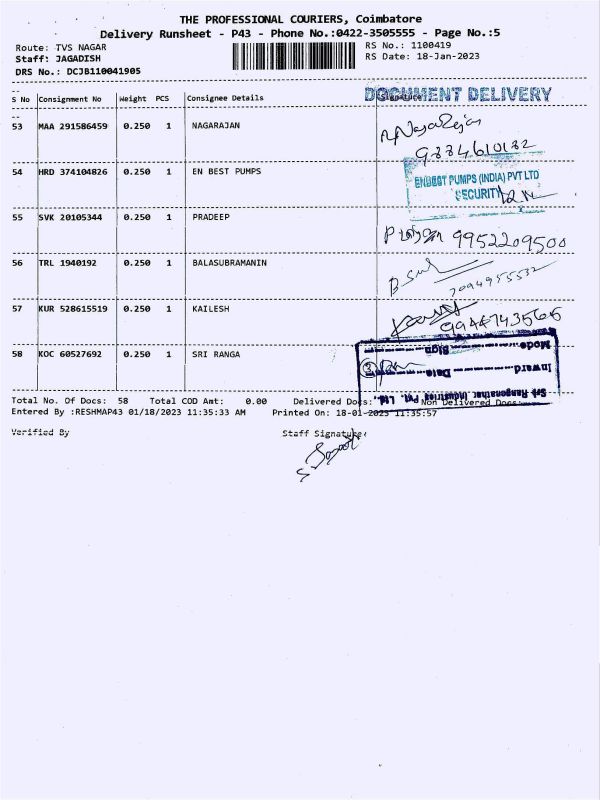 THE PROFESSIONAL COURIERS, Coimbatore
Delivery Runsheet - P43 - Phone No.:0422-3505555 - Page No.:5
Route: TVS NAGAR
RS No.: 1100419
Staff: JAGADISH
RS Date: 18-Jan-2023
DRS No.: DCJB110041905
S No Consignment No Weight PCS Consignee Details Signature
DOCUMENT DELIVERY
53 MAA 291586459 0.250 1 NAGARAJAN
Nagarajan
9884610132
54 HRD 374104826 0.250 1 EN BEST PUMPS
ENBEST PUMPS (INDIA) PVT LTD
SECURITY
55 SVK 20105344 0.250 1 PRADEEP
9952209500
56 TRL 1940192 0.250 1 BALASUBRAMANIN
7094955532
57 KUR 528615519 0.250 1 KAILESH
58 KOC 60527692 0.250 1 SRI RANGA
Mode Sign
Inward Date
Sri Ranganathar Industries Pvt. Ltd.,
Total No. Of Docs: 58 Total COD Amt: 0.00 Delivered Docs: Non Delivered Docs:
Entered By :RESHMAP43 01/18/2023 11:35:33 AM Printed On: 18-01-2023 11:35:57
Verified By Staff Signature